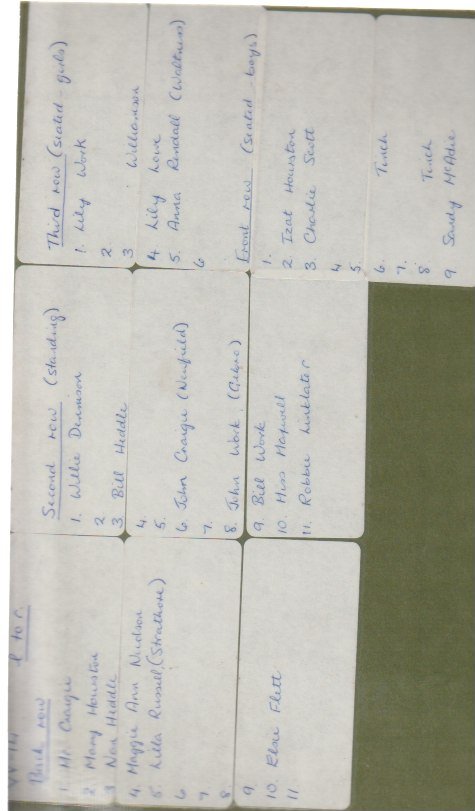 l to r.
Back row
1. Mr Craigie
2 Mary Houston
3 Nan Heddle
4. Maggie Ann
5. Lilla Russell, (Strathore)
6
7
8.
9.
10. Elsie Flett
11
Second row (standing)
1. Willie Dennison
2
3. Bill Heddle
4.
5.
6. John Craigie (Newfield)
7.
8. John Work.
9. Bill Work
10. Miss Maxwell
11. Robbie Linklater
Third row (seated - girls)
1. Lily Work
2
3 Williamson
4 Lily Lowe
5. Anna Rendall (Waltness)
6
Front row (seated - boys)
1.
2 Izat Houston
3. Charlie Scott
4
5.
6. Tinch
7.
8 Tinch
9 Sandy McAdie